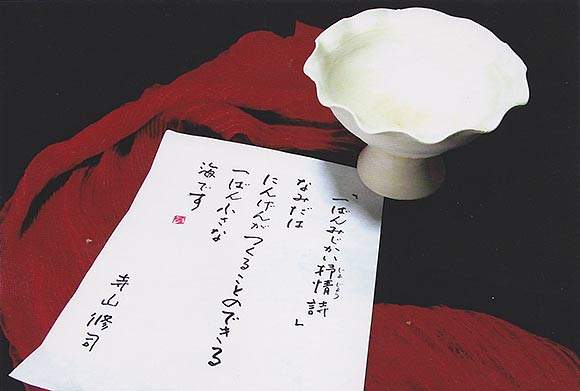 「一ばんみじかい抒情詩」
じょじょう
なみだは
にんげんが つくることのできる
一ばん小さな
海です
寺山修司